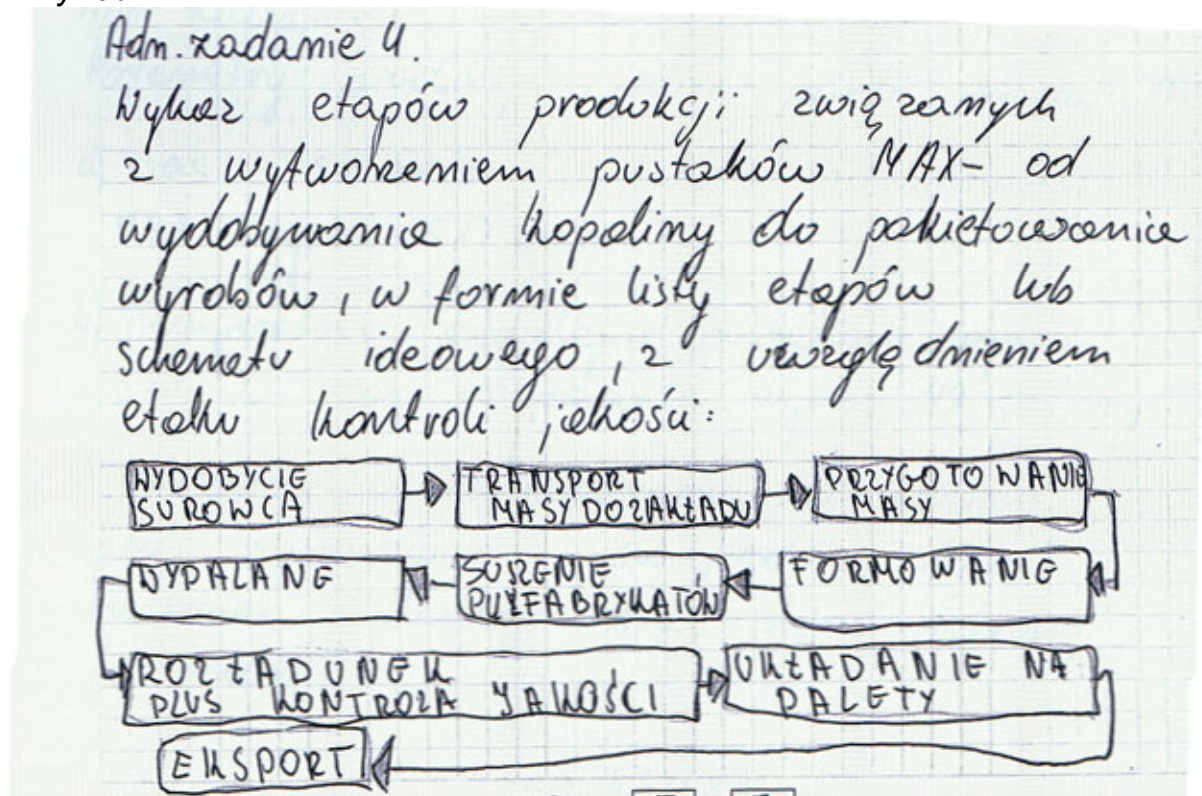 Adn. zadanie 4.
Wykaz etapów produkcji związanych
z wytworzeniem pustaków MAX- od
wydobywania kopaliny do pakietowania
wyrobów, w formie listy etapów lub
schematu ideowego, z uwzględnieniem
etaku kontroli jakości:
WYDOBYCIE
SUROWCA
TRANSPORT
MASY DO ZAKŁADU
PRZYGOTOWANIE
MASY
FORMOWANIE
SUSZENIE
PUŁFABRYKATÓW
WYPALANE
ROZŁADUNEK
PLUS KONTROLA JAKOŚCI
UKŁADANIE NA
PALETY
EKSPORT